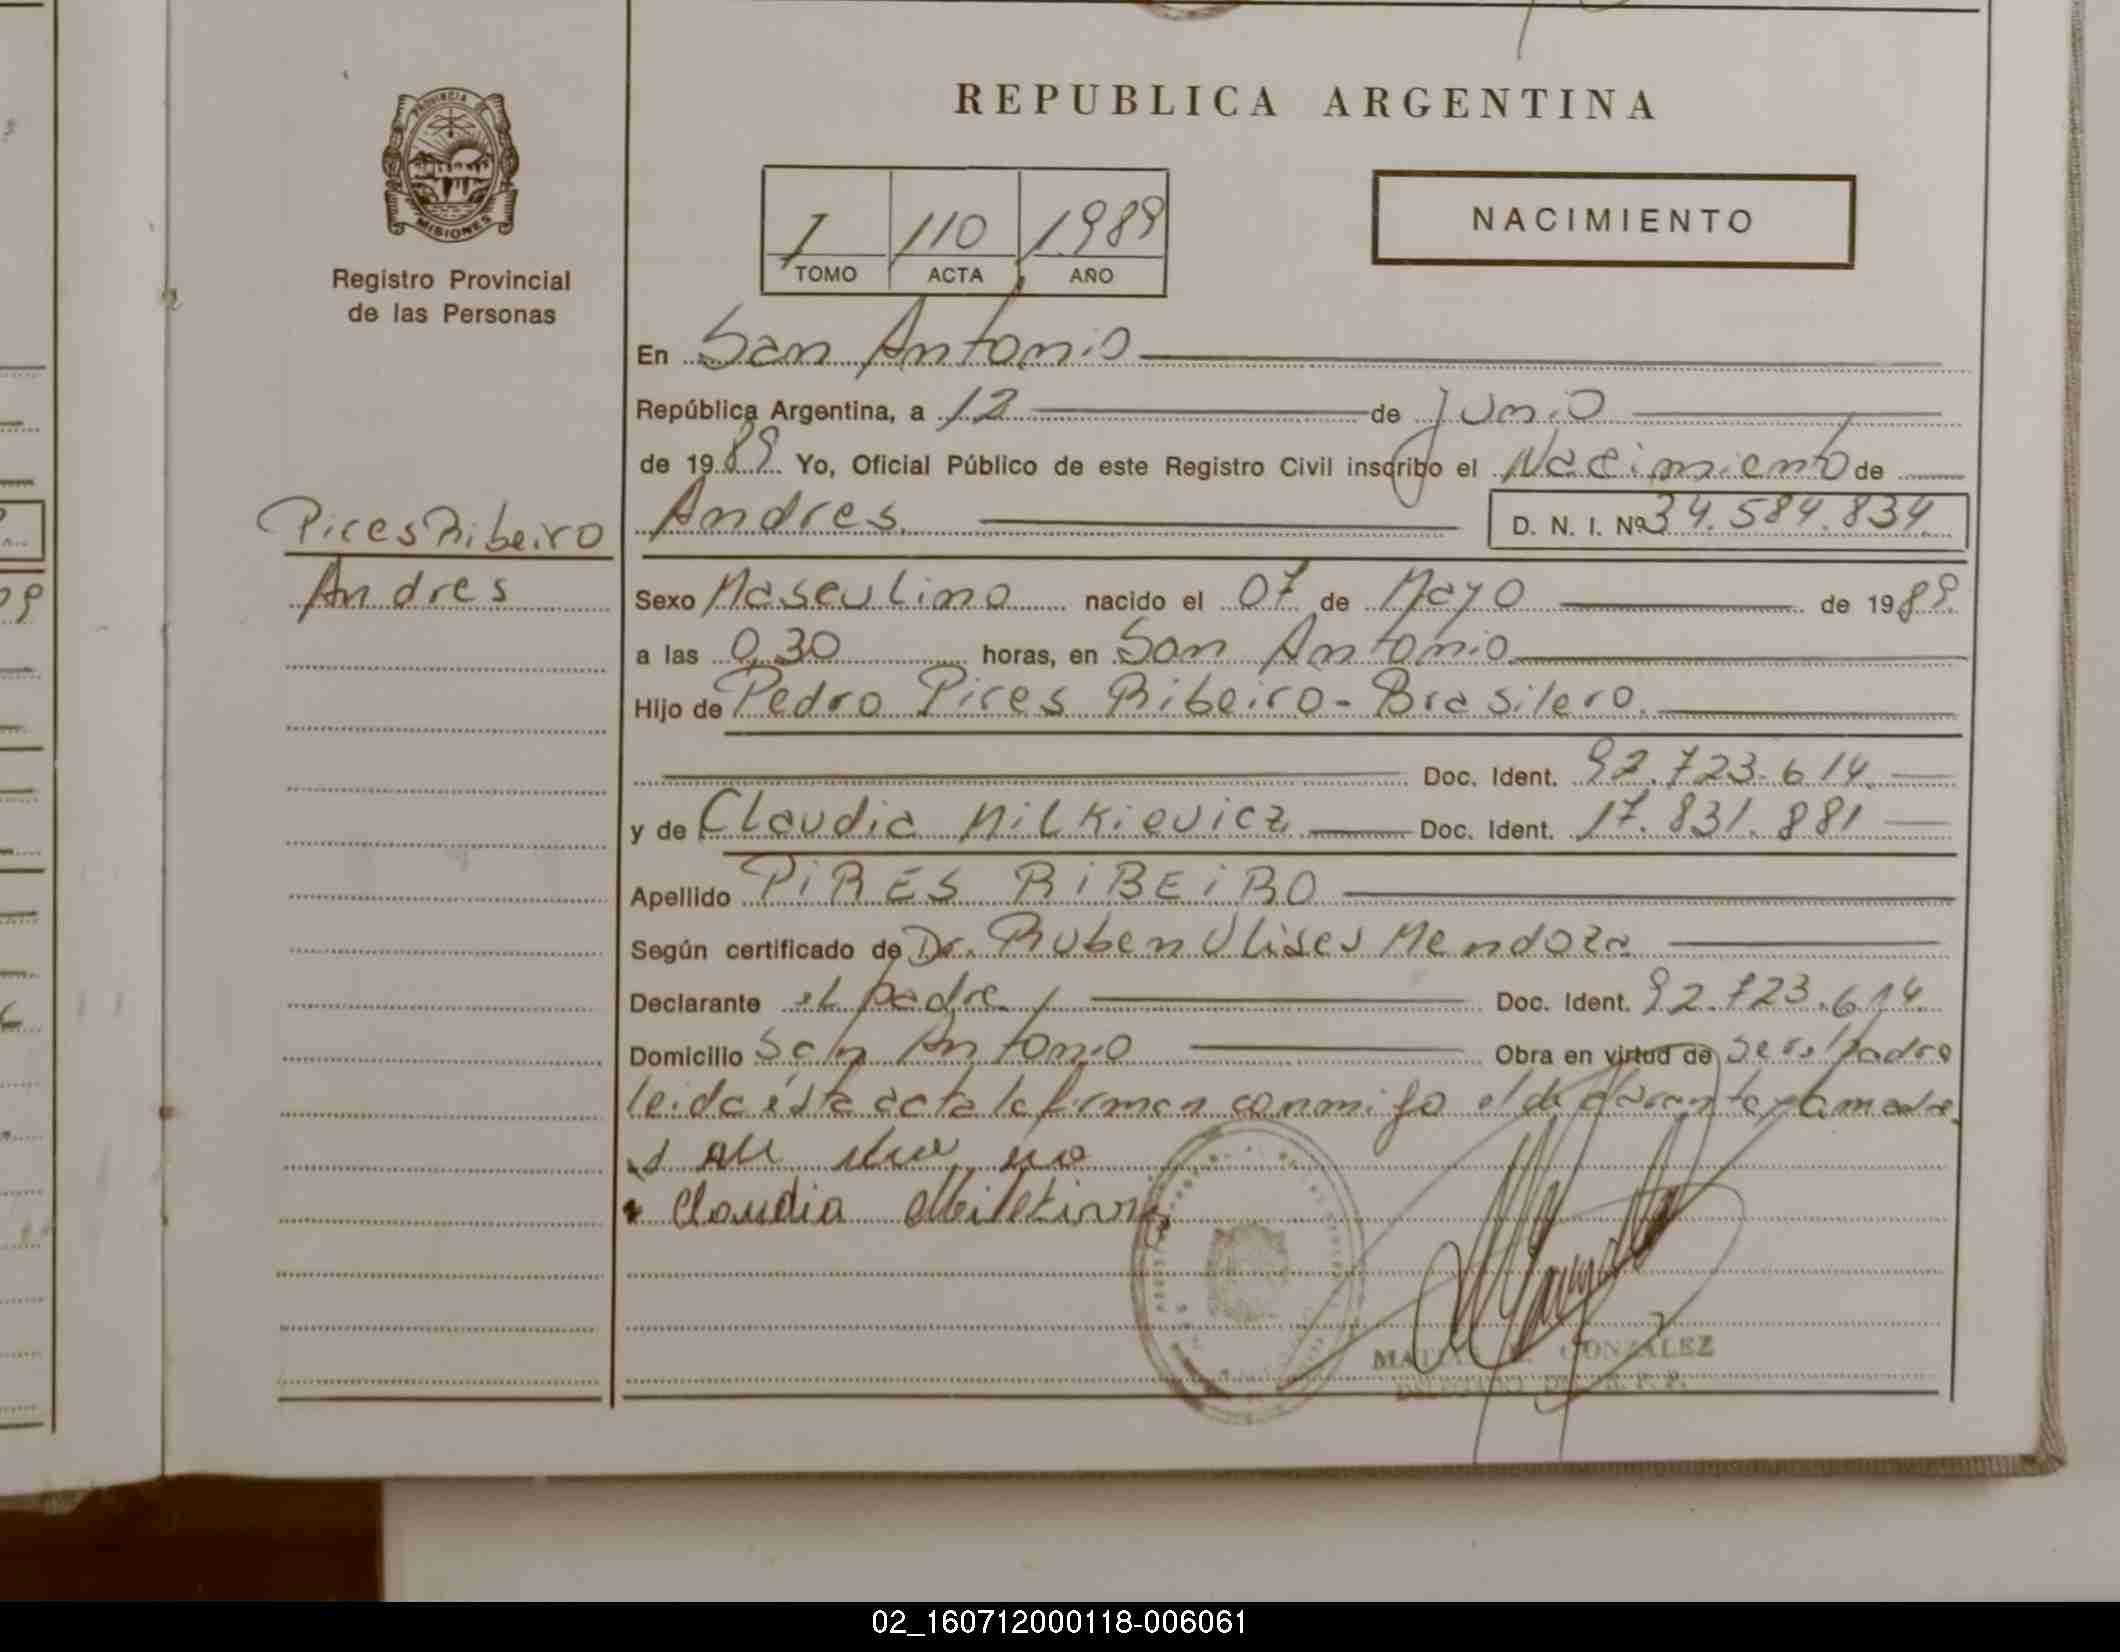 REPUBLICA ARGENTINA
PROVINCIA DE
MISIONES
Registro Provincial
de las Personas
1 110 1989
TOMO ACTA AÑO
NACIMIENTO
En San Antonio
República Argentina, a 12 de Junio
de 1989 Yo, Oficial Público de este Registro Civil inscribo el Nacimiento de
Pires Ribeiro
Andres
Andres D. N. I. Nº 34.584.834
Sexo Masculino nacido el 07 de Mayo de 1989
a las 0,30 horas, en San Antonio
Hijo de Pedro Pires Ribeiro - Brasilero.
Doc. Ident. 92.723.614
y de Claudia Milkievicz Doc. Ident. 17.831.881
Apellido PIRES RIBEIRO
Según certificado de Dr. Ruben Ulises Mendoza
Declarante el padre Doc. Ident. 92.723.614
Domicilio San Antonio Obra en virtud de ser el padre
leida ésta acta la firman conmigo el declarante y la madre.
Claudia
GONZALEZ
02_160712000118-006061